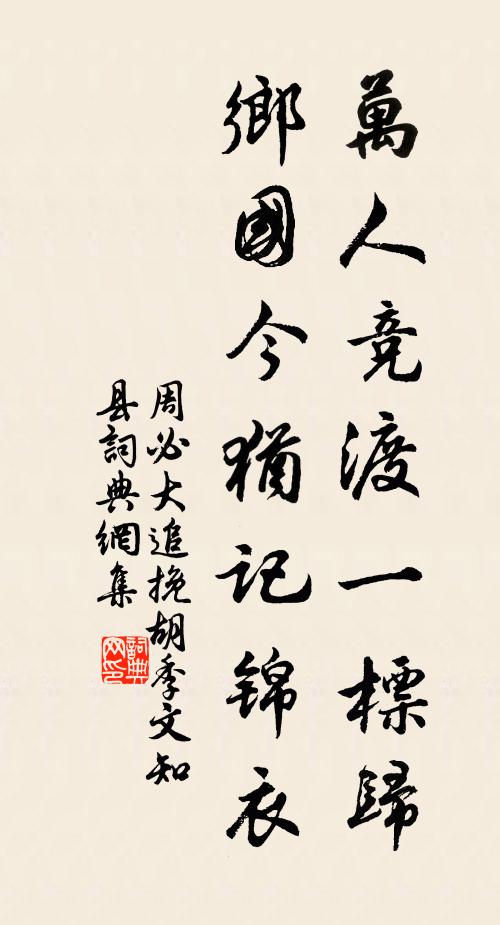 萬人竞渡一標歸
鄉國今猶记錦衣
周必大追挽胡季文知
县詞典網集
詞典网印